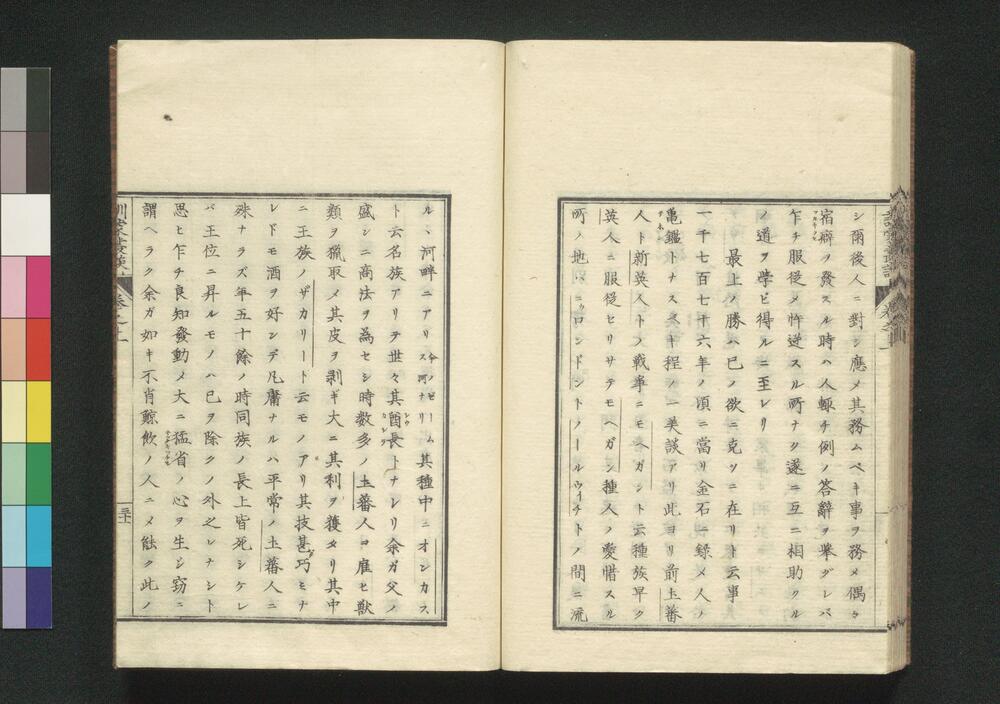 シ爾後人ニ對シ應メ其務ムベキ事ヲ務メ偶々
宿癖ノ發スル時ハ人輙チ例ノ答辭ヲ擧グレバ
乍チ服從メ忤逆スル所ナク遂ニ互ニ相助クル
ノ道ヲ學ビ得ルニ至レリ
最上ノ勝ハ已ノ欲ニ克ツニ在リト云事
一千七百七十六年ノ頃ニ當リ金石ニ録メ人ノ
亀鑑トナスベキ程ノ一美談アリ此ヨリ前土蕃
人ト新英人トノ戰事ニモヘガント云種族早ク
英人ニ服從ヒリサテモヘガン種人ノ愛惜スル
所ノ地ハニウロンドントノールウイチトノ間ニ流
ルヽ河畔ニアリ今ノゼームス河ナリ其種中ニオンカス
ト云名族アリテ世々其酋長トナレリ余ガ父ノ
盛シニ商法ヲ為セシ時數多ノ土蕃人ヨ雇ヒ獸
類ヲ獵取メ其皮ヲ剥ギ大ニ其利ヲ獲タリ其中
ニ王族ノザカリートト云モノアリ其技甚ダ巧ミナ
レドモ酒ヲ好ンデ凡庸ナルハ平常ノ土蕃人ニ
殊ナラズ年五十餘ノ時同族ノ長上皆死シケレ
バ王位ニ昇ルモノハ已ヲ除クノ外之レナシト
思ヒ乍チ良知發動メ大ニ猛省ノ心ヲ生シ窃ニ
謂ヘラク余ガ如キ不肖鯨飲ノ人ニメ能ク此ノ